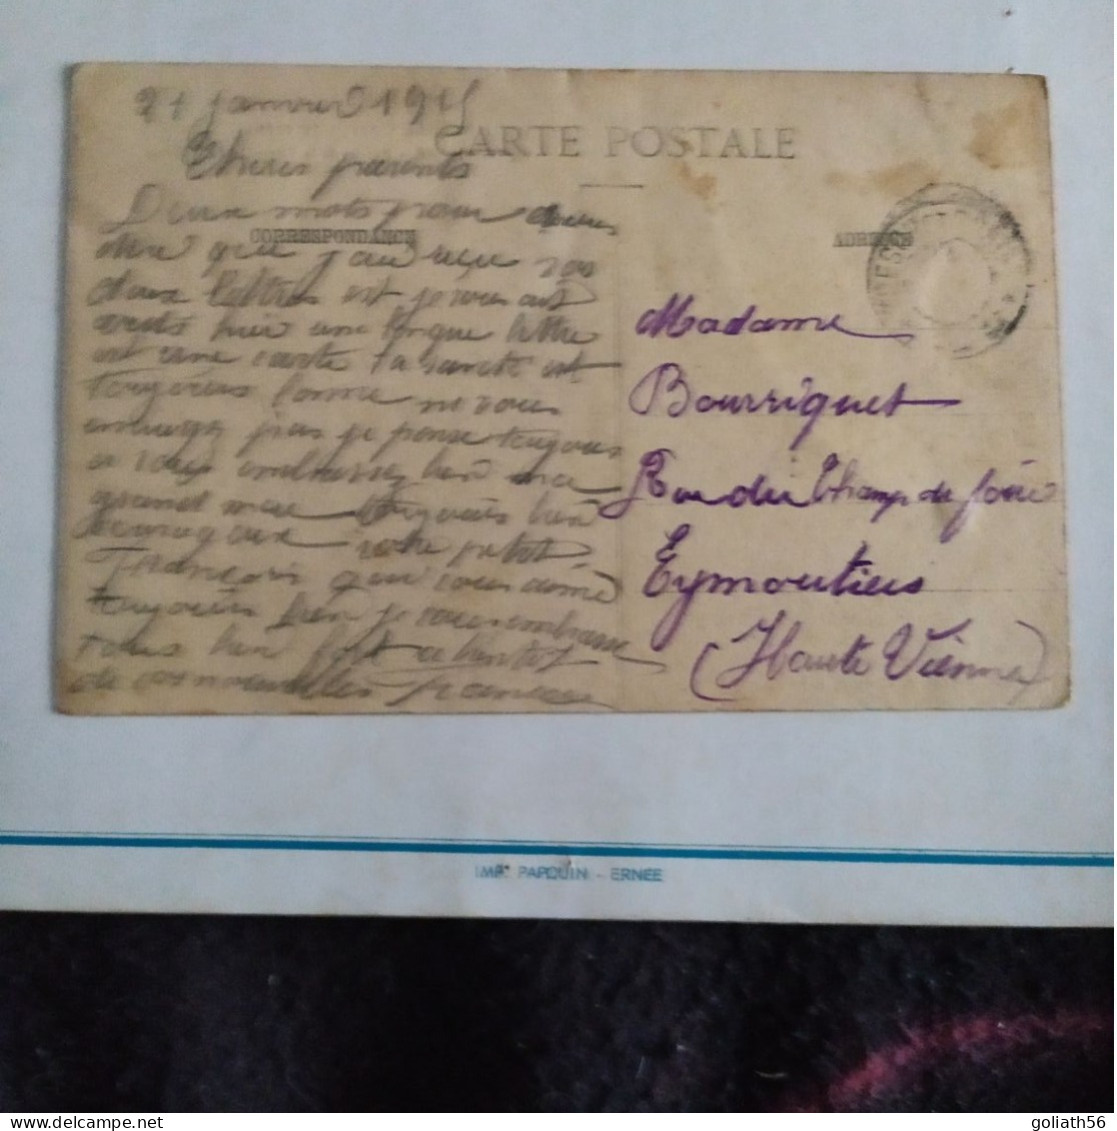 21 janvier 1915
CARTE POSTALE
Chers parents
CORRESPONDANCE
ADRESSE
Deux mots pour vous
dire que j'ai reçu vos
deux lettres est je vous est
hier une longue lettre
est une carte la santé est
toujours bonne ne vous
pas je pense toujours
a vous embrassez bien ma
grand mere toujours bien
votre petit
François qui vous aime
toujours bien je vous embrasse
tous bien fort a bientot
de vos nouvelles François
Madame
Bourriquet
Rue du Champ de foire
Eymoutiers
(Haute Vienne)
IMP. PAPOUIN - ERNEE
goliath56